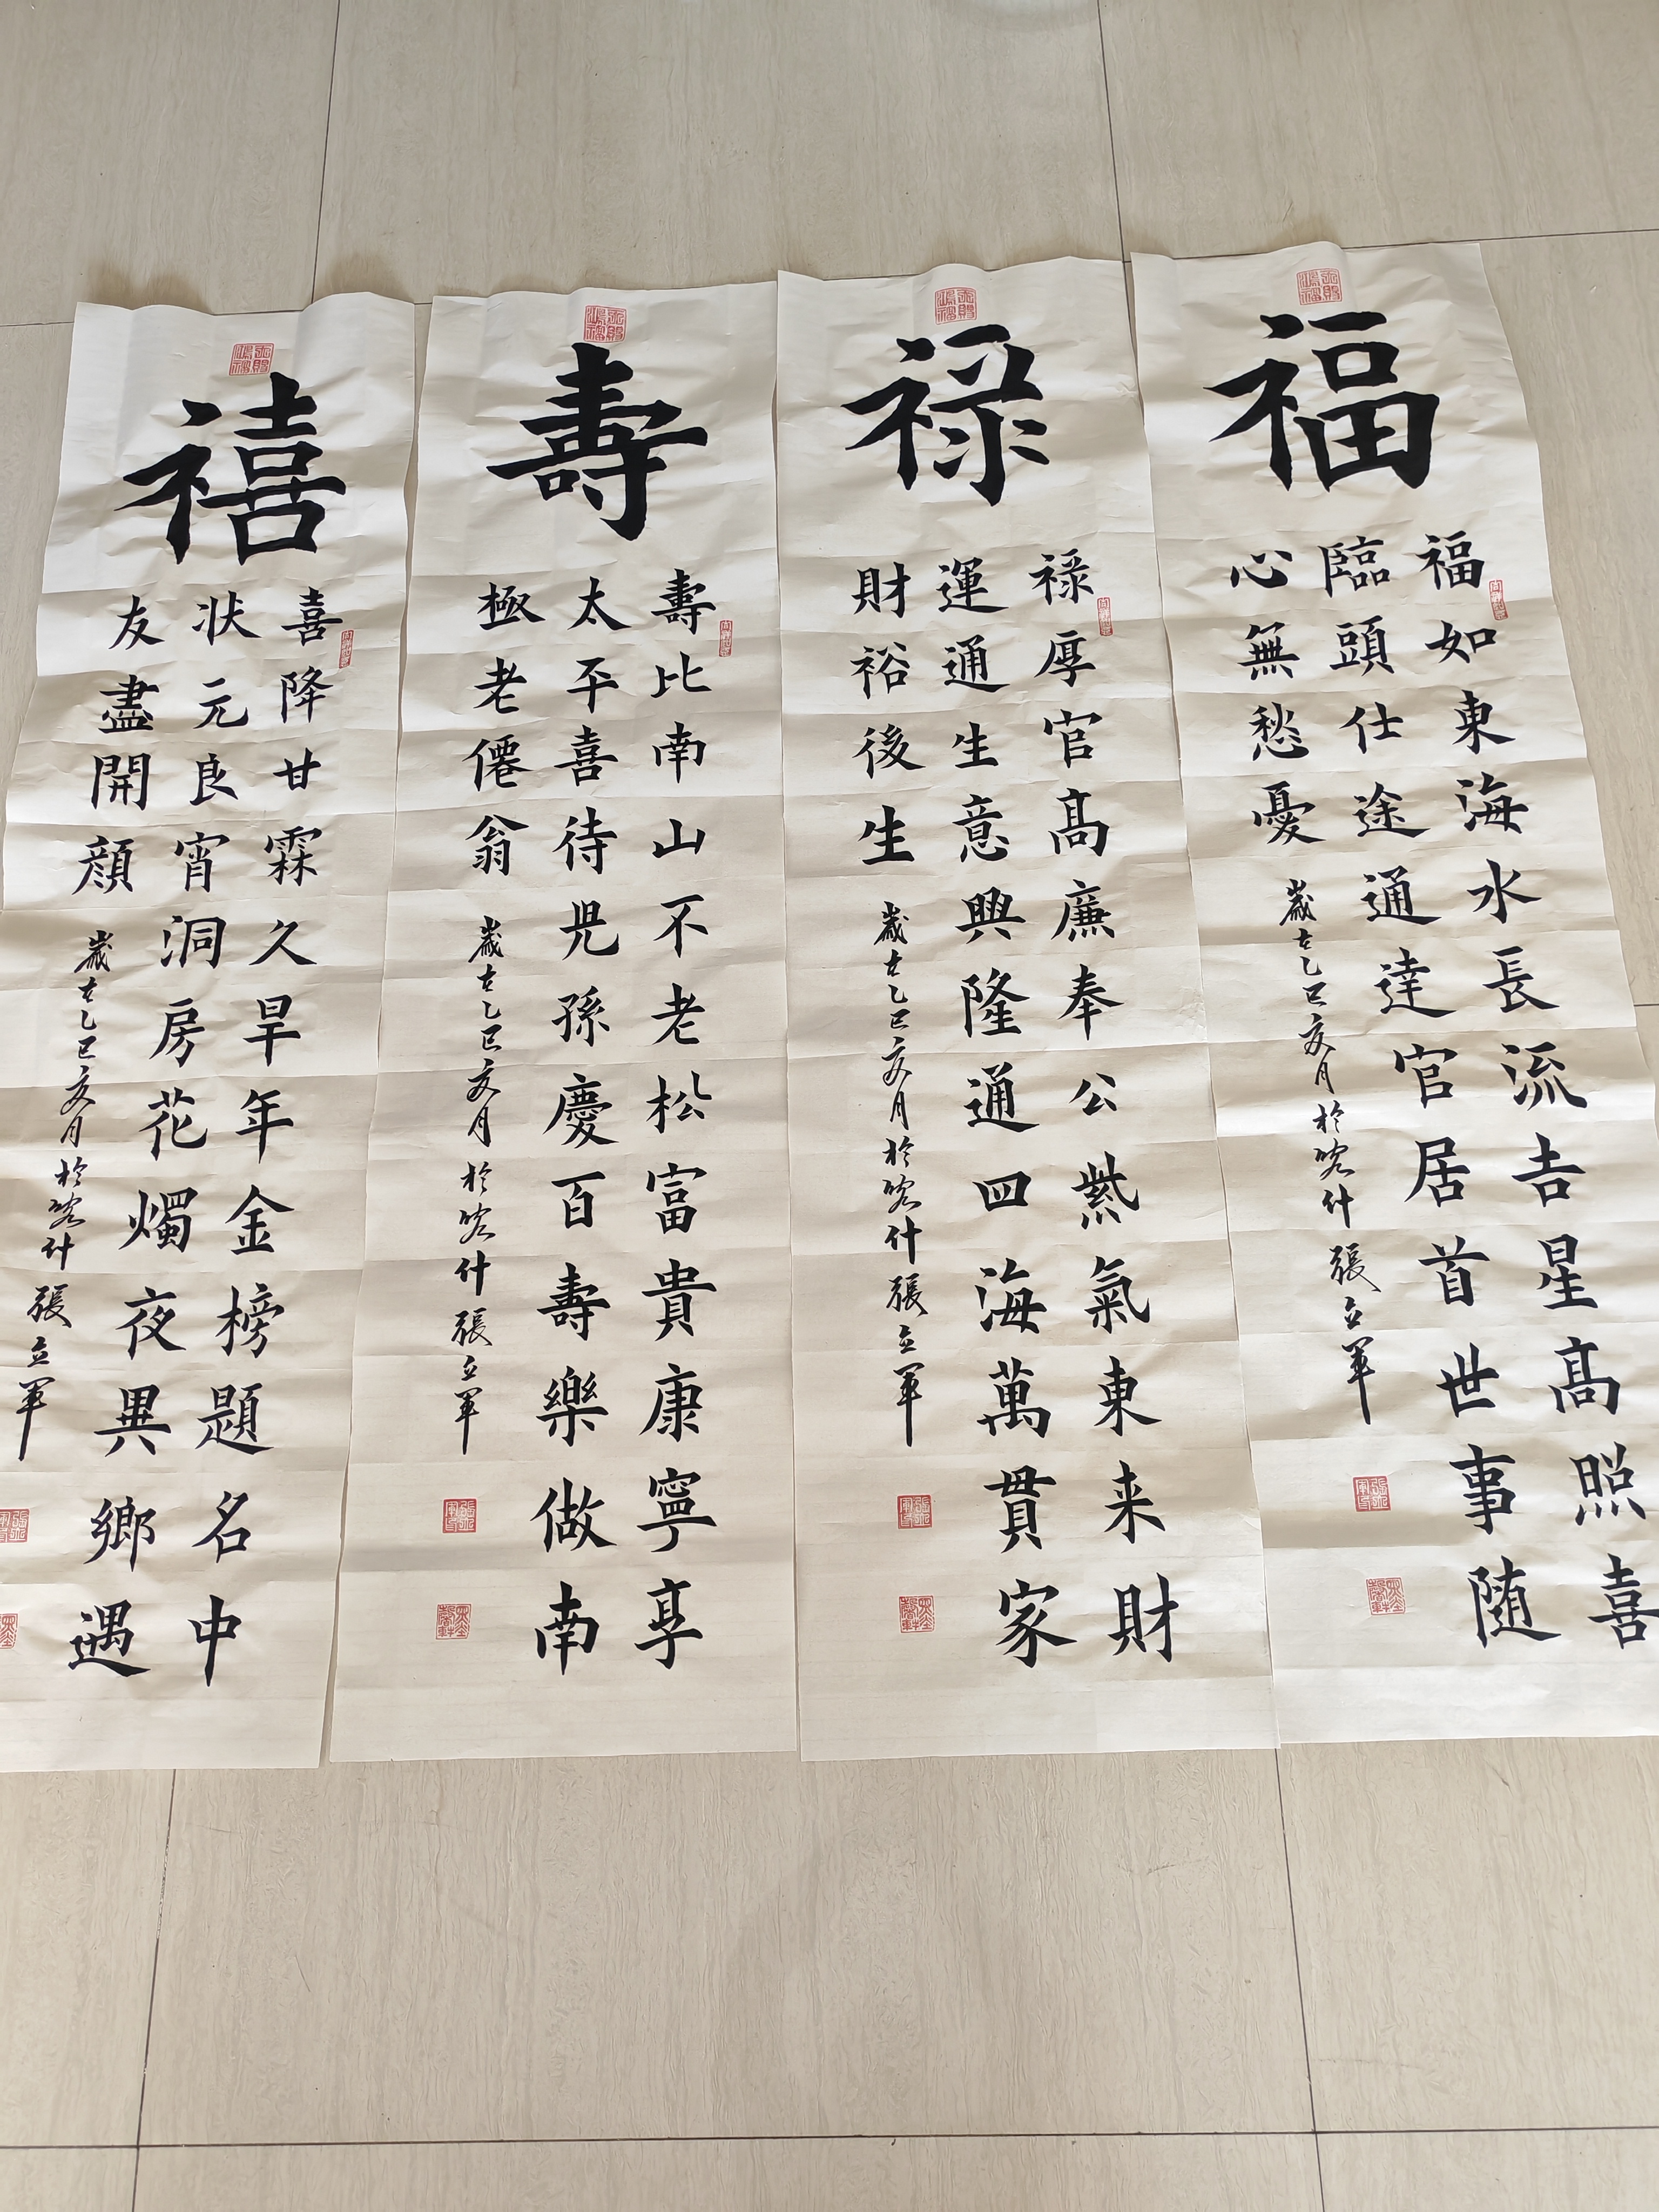 福
福如東海水長流吉星高照喜
臨頭仕途通達官居首世事随
心無愁憂
歲在乙巳亥月於喀什張立軍
禄
禄厚官髙廉奉公紫氣東来財
運通生意興隆通四海萬貫家
財裕後生
歲在乙巳亥月於喀什張立軍
壽
壽比南山不老松富貴康寧享
太平喜待児孫慶百壽樂做南
極老僊翁
歲在乙巳亥月於喀什張立軍
禧
喜降甘霖久旱年金榜題名中
状元良宵洞房花燭夜異鄉遇
友盡開顔
歲在乙巳亥月於喀什張立軍